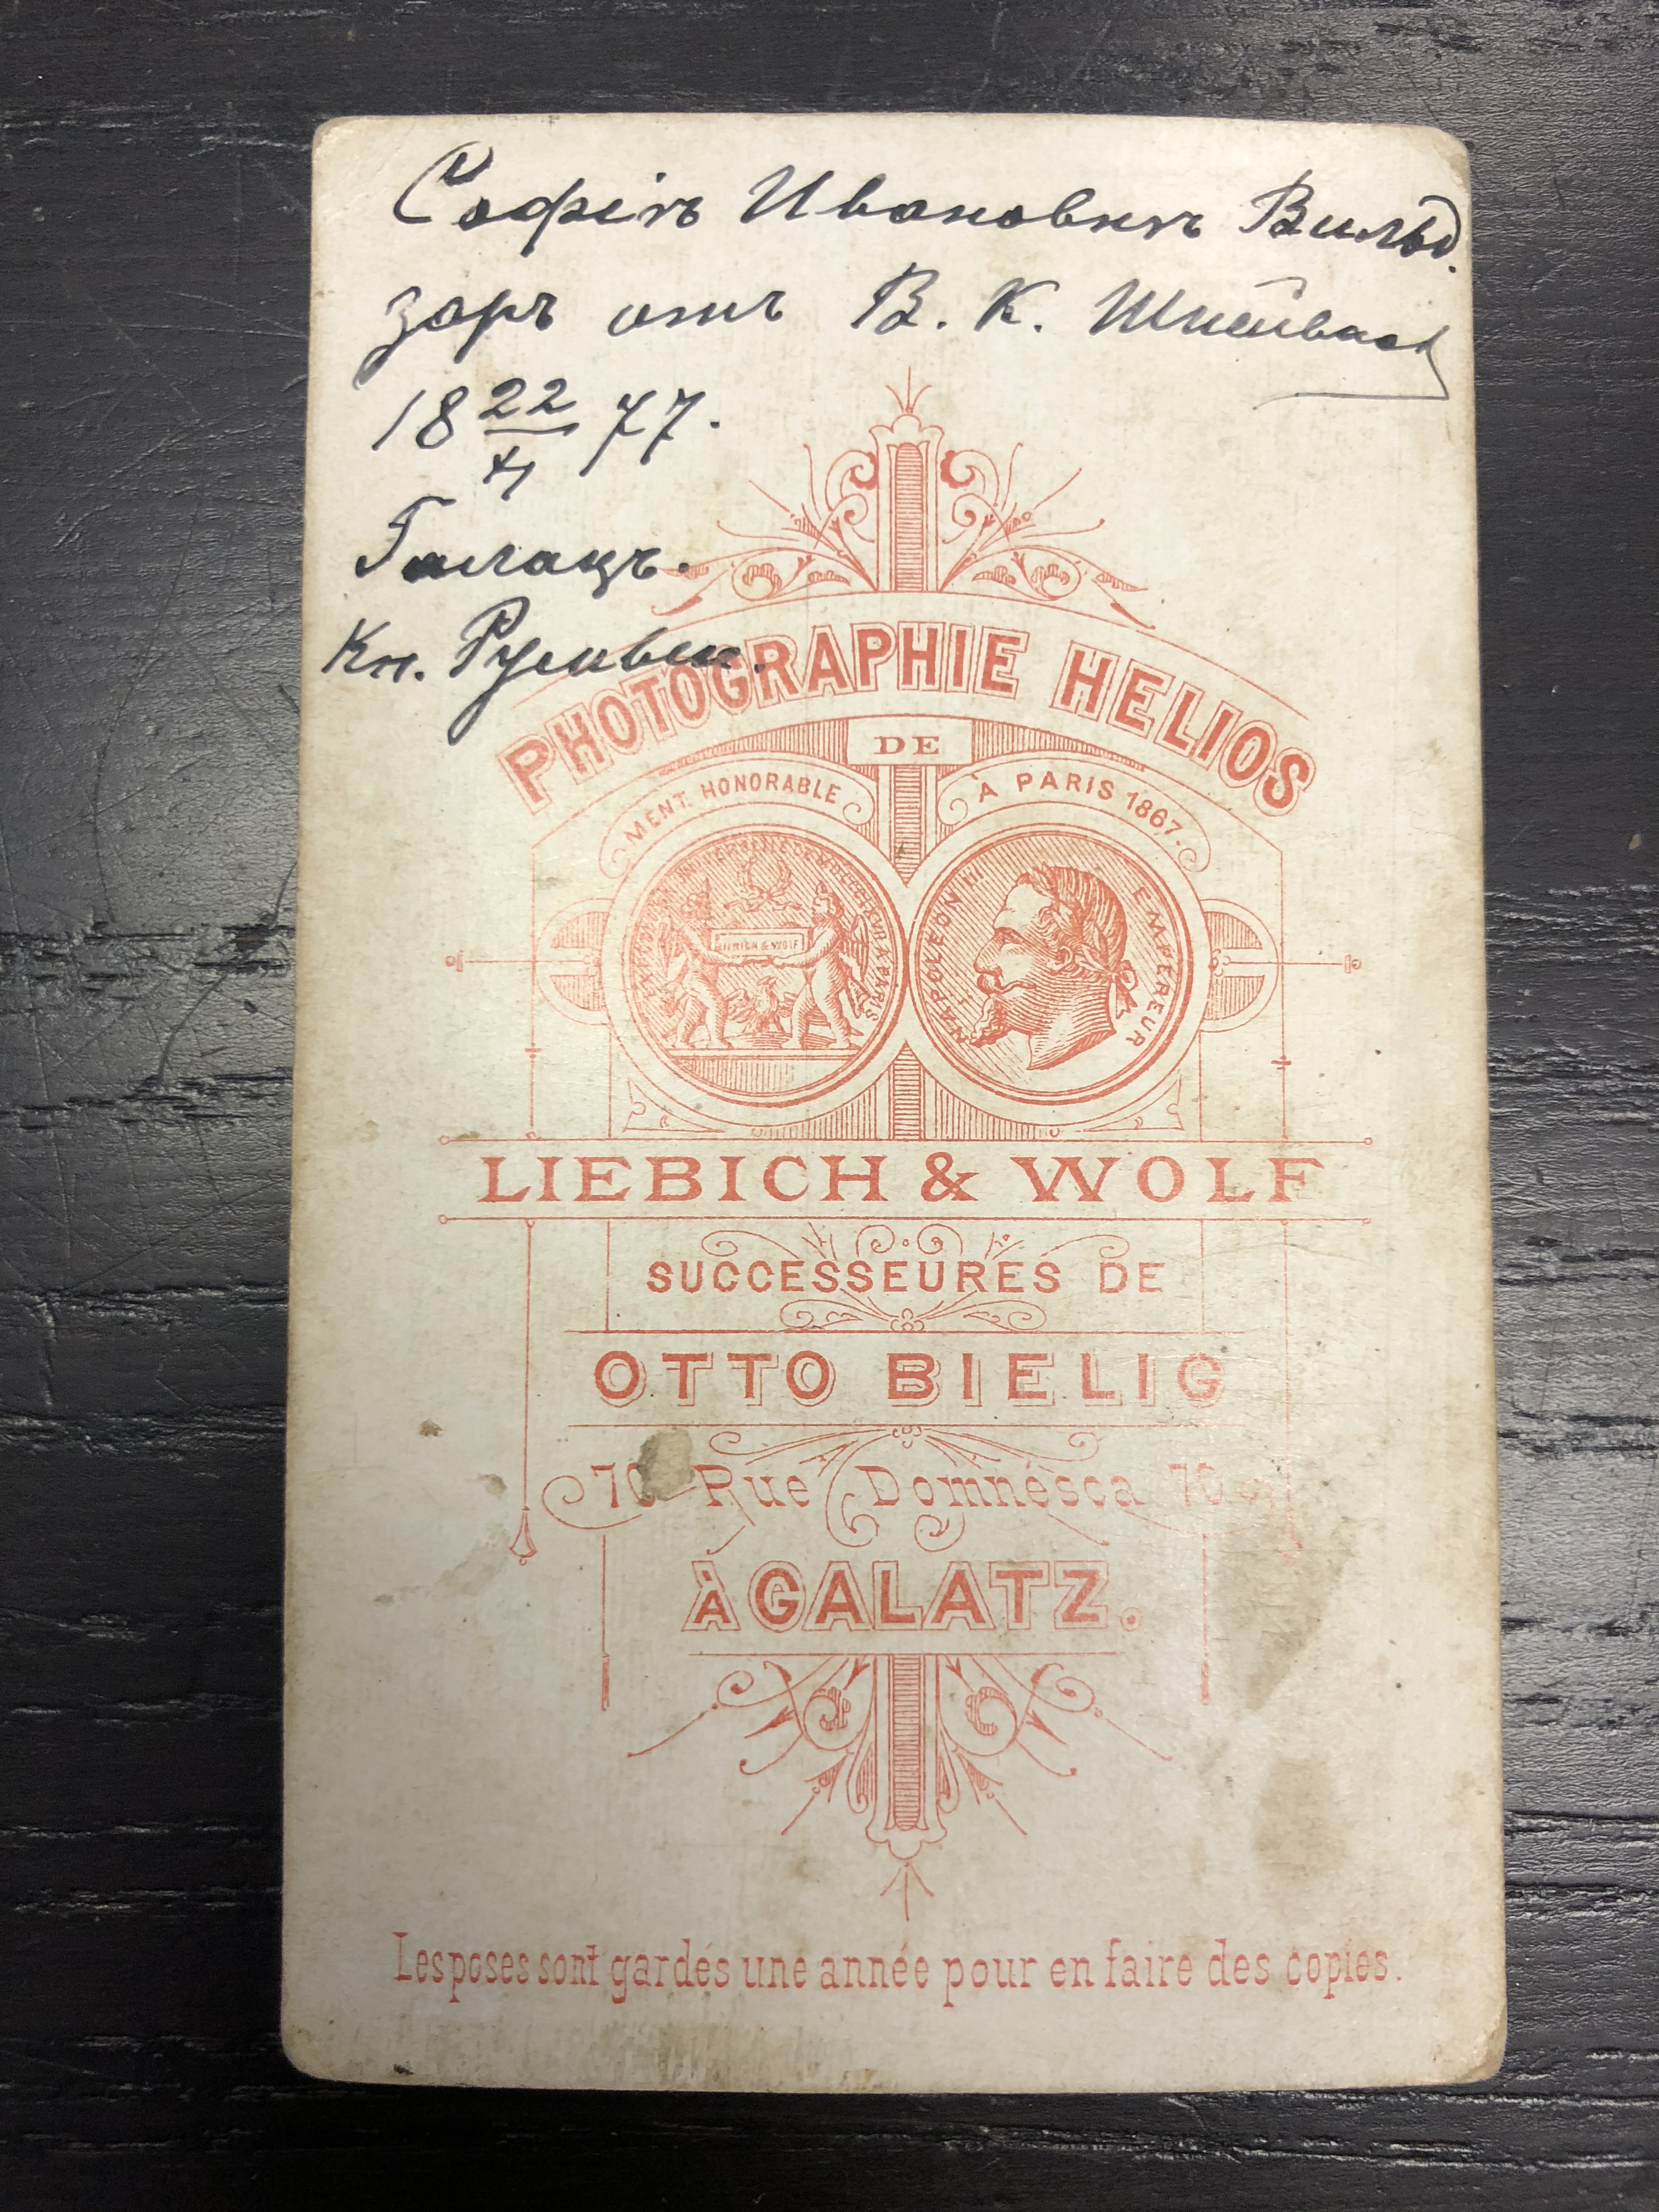 Софіѣ Ивановнѣ Вильд.
заръ отъ В. К.
18 22/X 77.
Галацъ.
Кн.
PHOTOGRAPHIE HELIOS
DE
MENT. HONORABLE
À PARIS 1867.
LIEBICH & WOLF
NAPOLEON III EMPEREUR
LIEBICH & WOLF
SUCCESSEURES DE
OTTO BIELIG
70 Rue Domnésca 70
À GALATZ.
Les poses sont gardés une année pour en faire des copies.